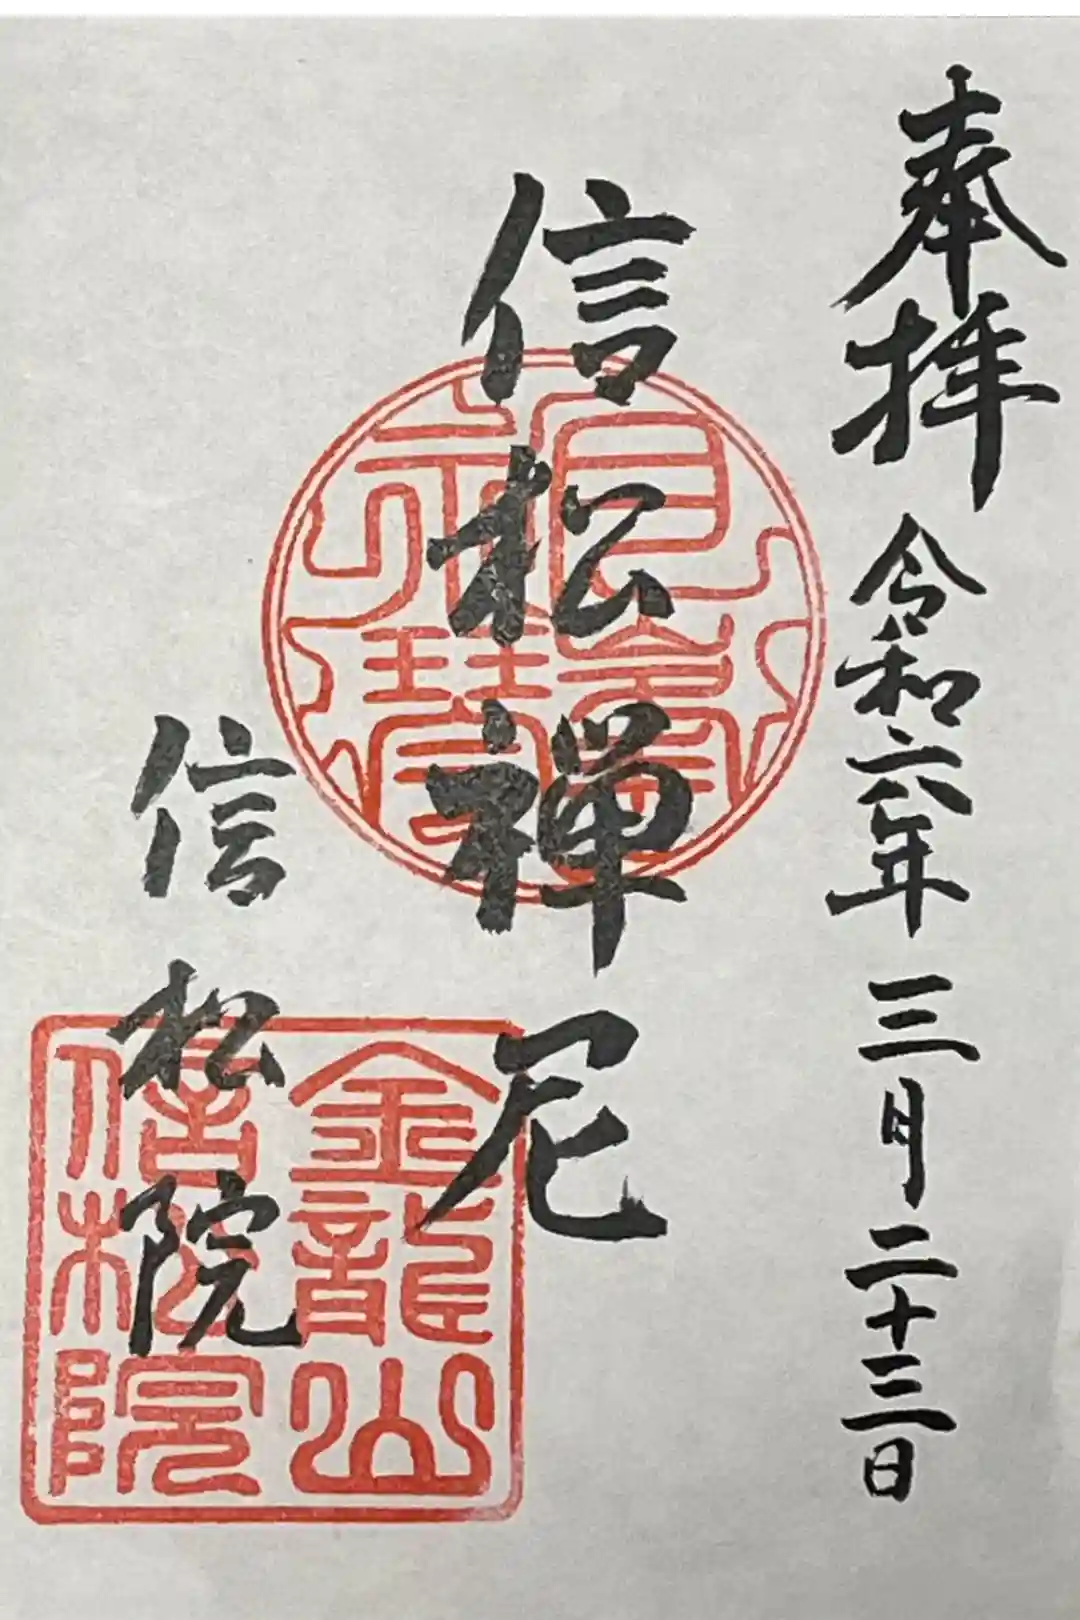 奉拝
令和六年三月二十三日
信松禅尼
信松院
金龍山
信松院